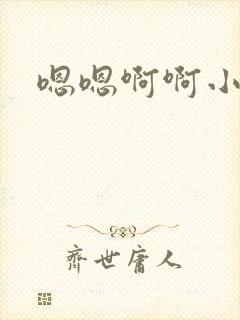 嗯嗯啊啊小
齐世庸人